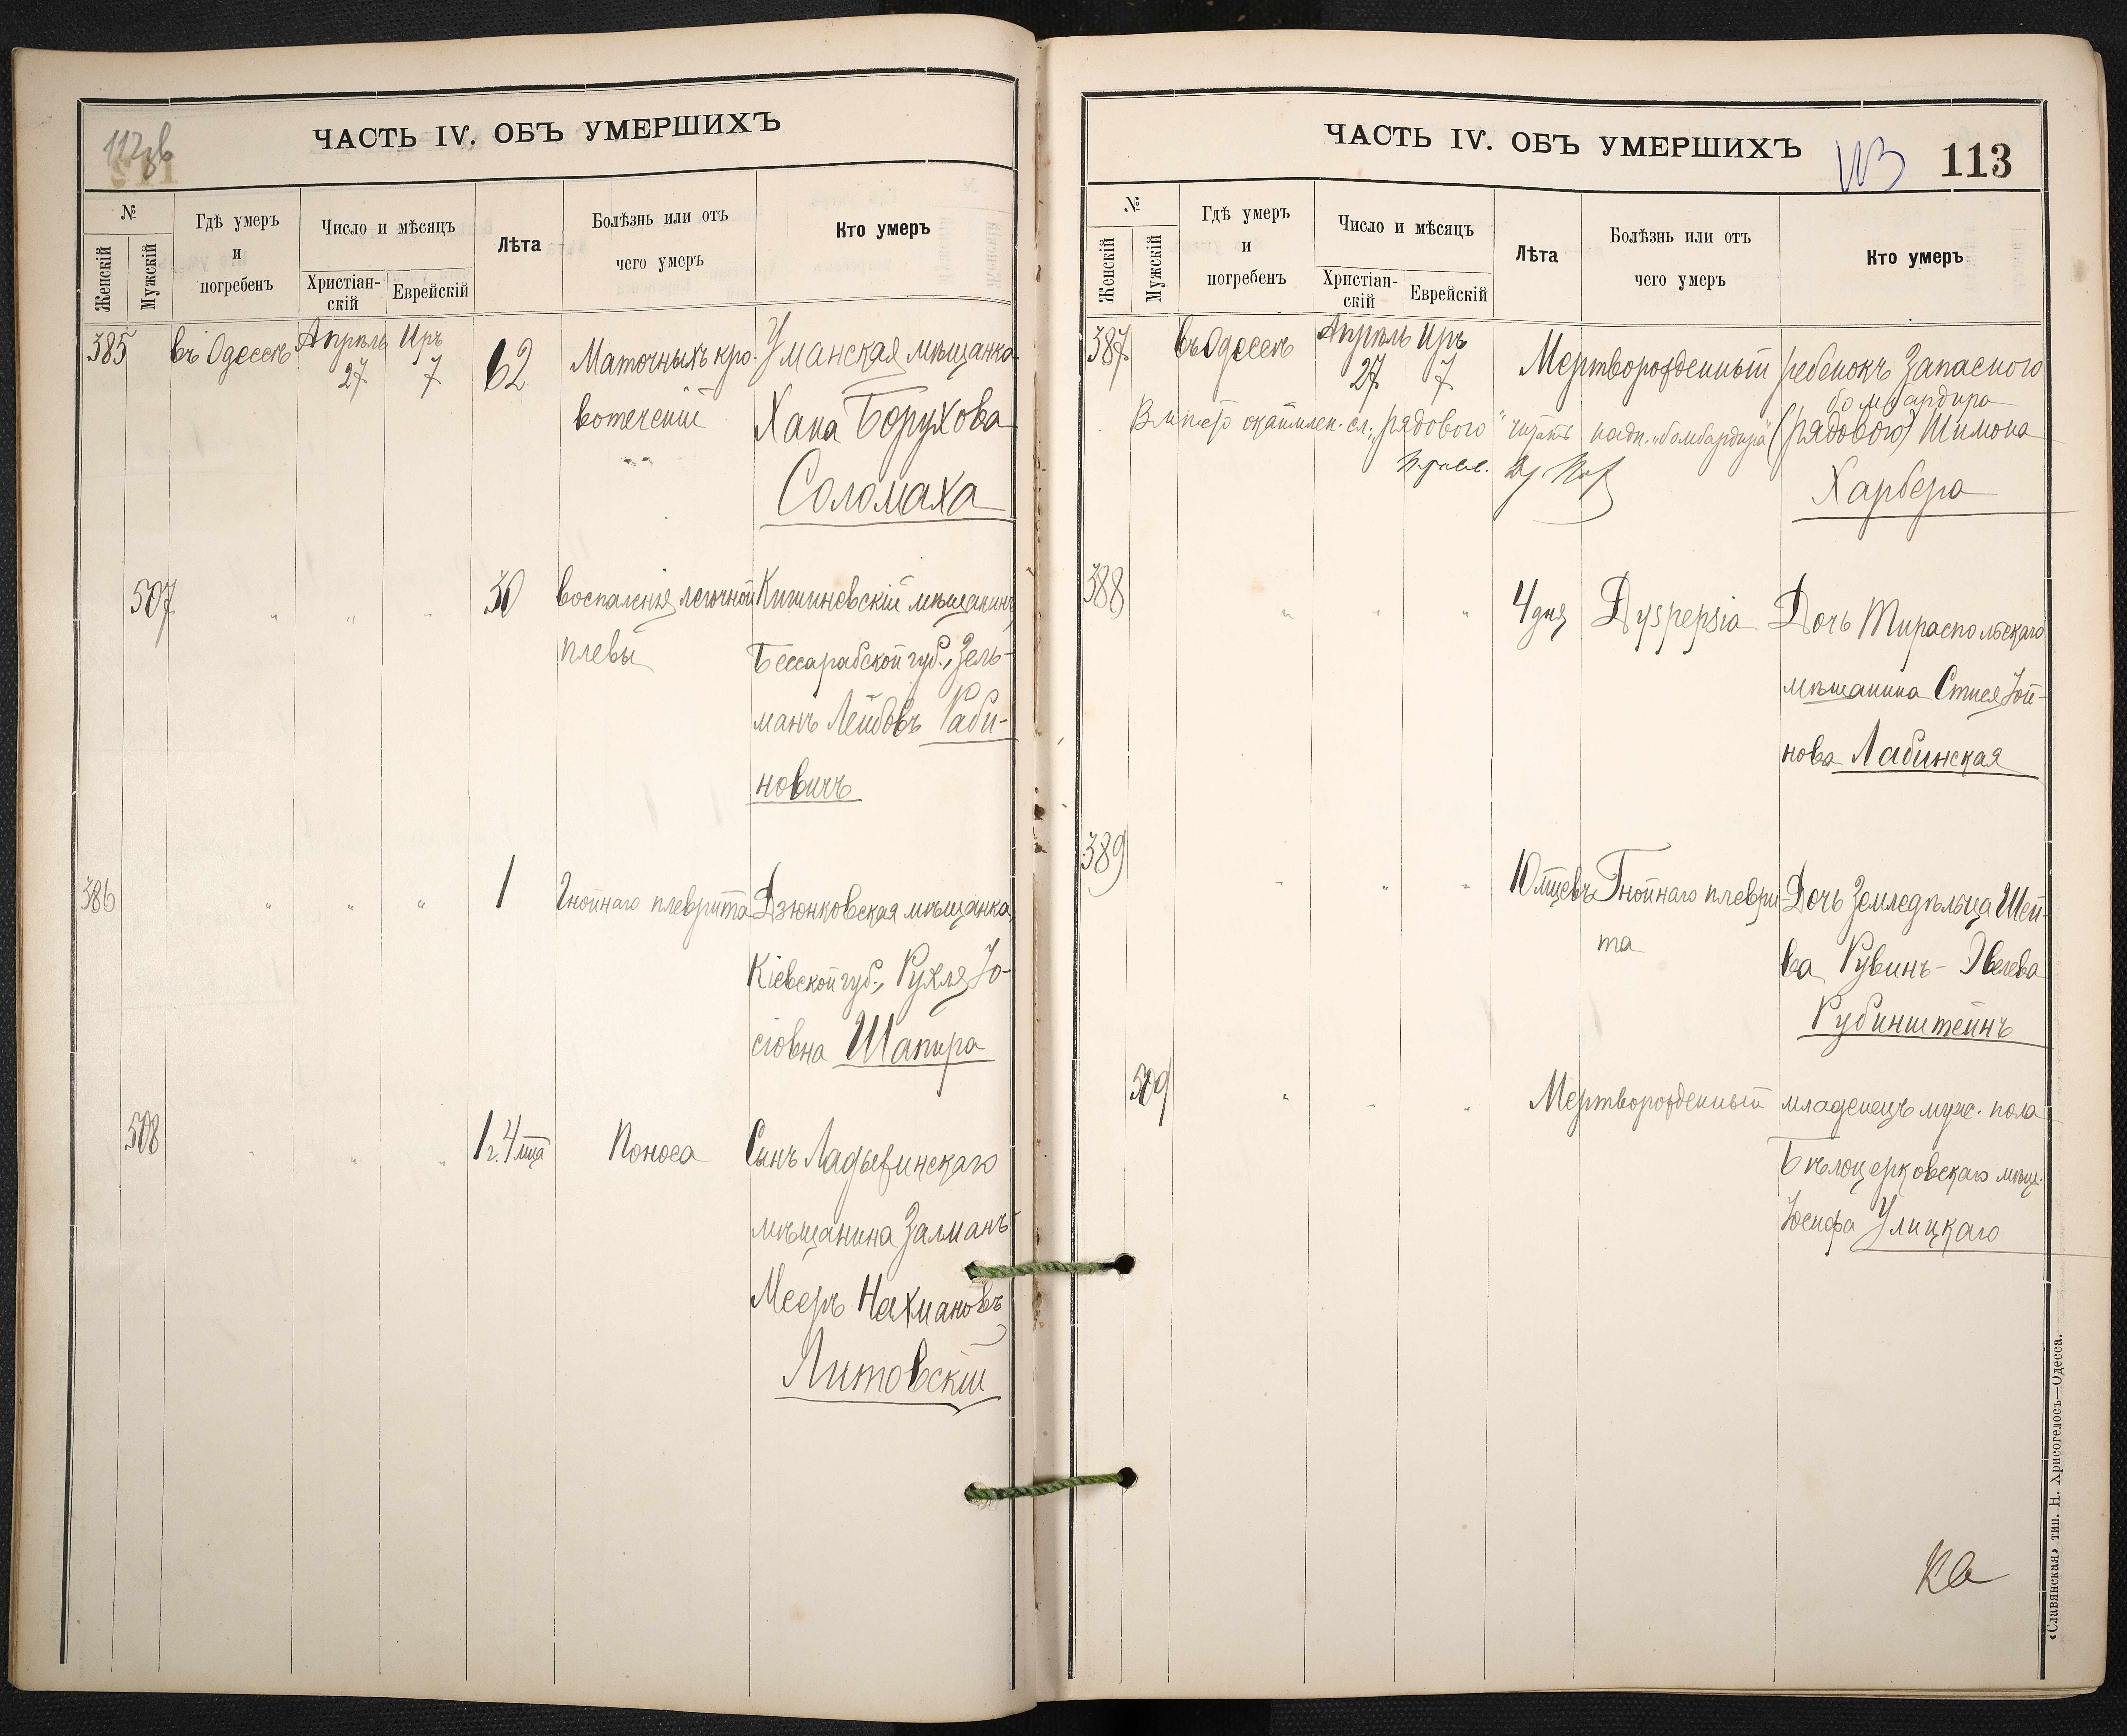 112об
ЧАСТЬ IV. ОБЪ УМЕРШИХЪ
№
Женскій
Мужскій
Гдѣ умеръ
и
погребенъ
Число и мѣсяцъ
Христіан-
скій
Еврейскій
Лѣта
Болѣзнь или отъ
чего умеръ
Кто умеръ
385 въ Одессѣ Апрѣль 27 Иръ 7 62 Маточныхъ кро- Уманская мѣщанка
вотеченій Хана Борухова
Соломаха
507 " " " 30 воспаленія легочной Кишиневскій мѣщанинъ,
плевы Бессарабской губ., Зель-
манъ Лейбовъ Раби-
новичъ
386 " " " 1 Гнойнаго плеврита Дзюнковская мѣщанка,
Кіевской губ., Рухля Іо-
сіовна Шапира
508 " " " 1 г. 4 мца Поноса Сынъ Ладыжинскаго
мѣщанина Залманъ-
Мееръ Нахмановъ
Литовскій
ЧАСТЬ IV. ОБЪ УМЕРШИХЪ
113 113
№
Женскій
Мужскій
Гдѣ умеръ
и
погребенъ
Число и мѣсяцъ
Христіан-
скій
Еврейскій
Лѣта
Болѣзнь или отъ
чего умеръ
Кто умеръ
387 въ Одессѣ Апрѣль 27 Иръ 7 Мертворожденный ребенокъ Запасного
бомбардира
сл. „рядового" читать надп. „бомбардира" (рядового) Шимона
Харбера
388 " " " 4 дня Dyspepsia Дочь Тираспольскаго
мѣщанина Стися Іой-
нова Лабинская
389 " " " 10 мцевъ Гнойнаго плеври- Дочь Земледѣльца Шей-
та ва Рувинъ-Эвелева
Рубинштейнъ
509 " " " Мертворожденный младенецъ муж. пола
Бѣлоцерковскаго мѣщ.
Іосифа Улицкаго
Ка
«Славянская» тип. Н. Хрисогелосъ—Одесса.